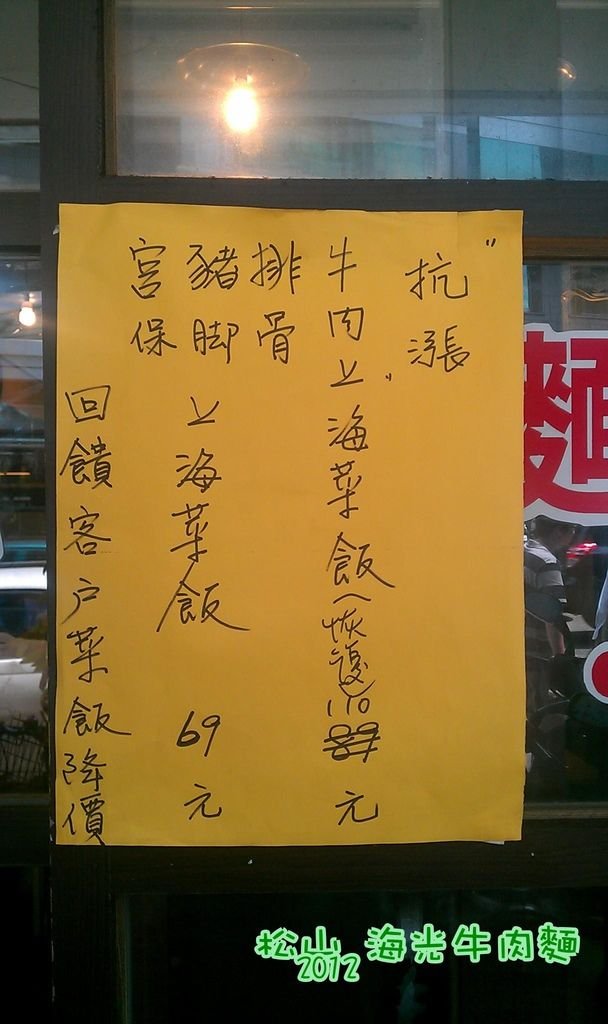 "抗漲"
牛肉上海菜飯(恢復)110 89元
排骨
豬腳 上海菜飯 69元
宮保
回饋客户菜飯降價
麵
松山 海光牛肉麵
2012